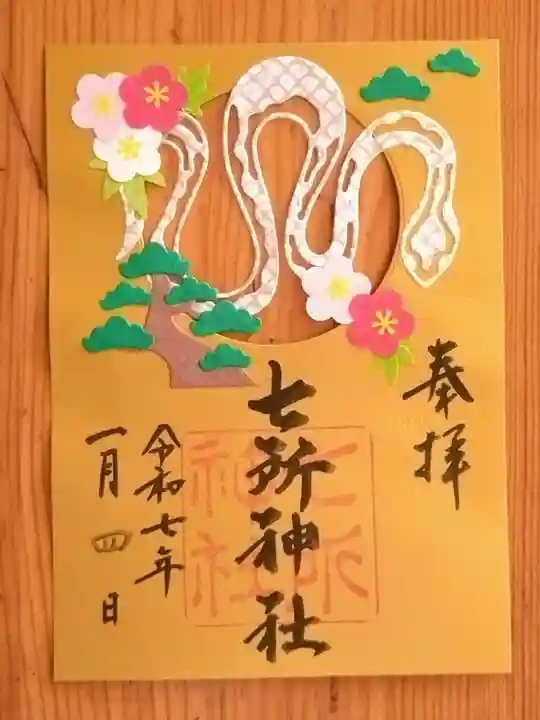 奉拝
七所神社
令和七年
一月四日
七所
神社